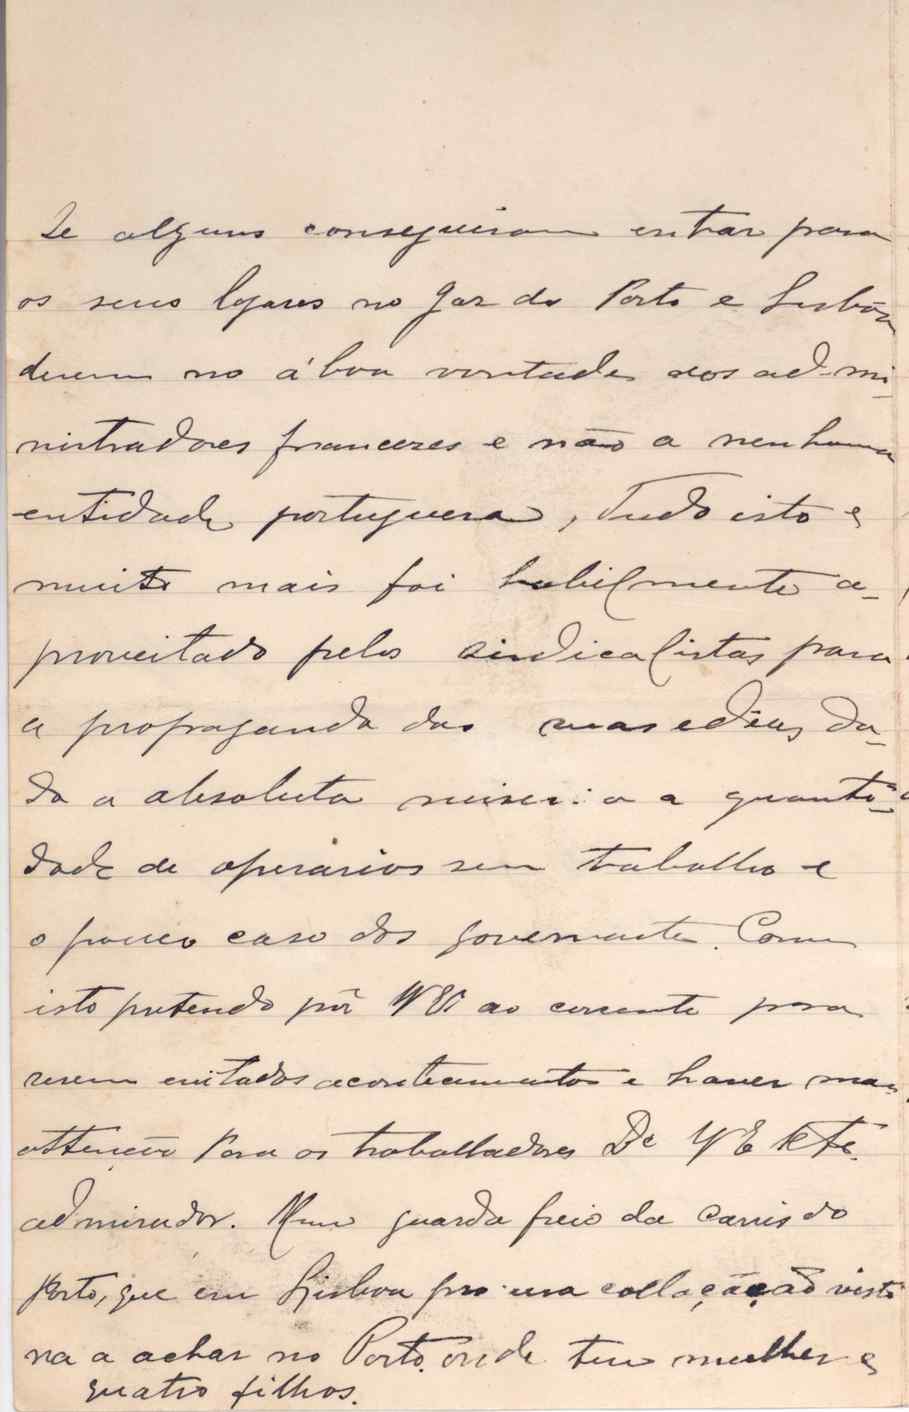 Se alguns conseguiram entrar para
os seus logares no Gaz do Porto e Lisbôa
devem no á boa vontade dos admi-
nistradores francezes e não a nenhuma
entidade portugueza, Tudo isto e
muito mais foi habilmente a-
proveitado pelos sindicalistas para
a propaganda das suas edias, da-
da a absoluta miseria a quanti-
dade de operarios sem trabalho e
o pouco caso dos governante. Com
isto pretendo pôr V Ex ao corrente para
serem evitados acontecimentos e haver mais
attenção Para os trabalhadores De V E
admirador. Um guarda freio da Carris do
Porto, que em Lisboa procura collocação visto
na a achar no Porto. onde tem mulher e
quatro filhos.